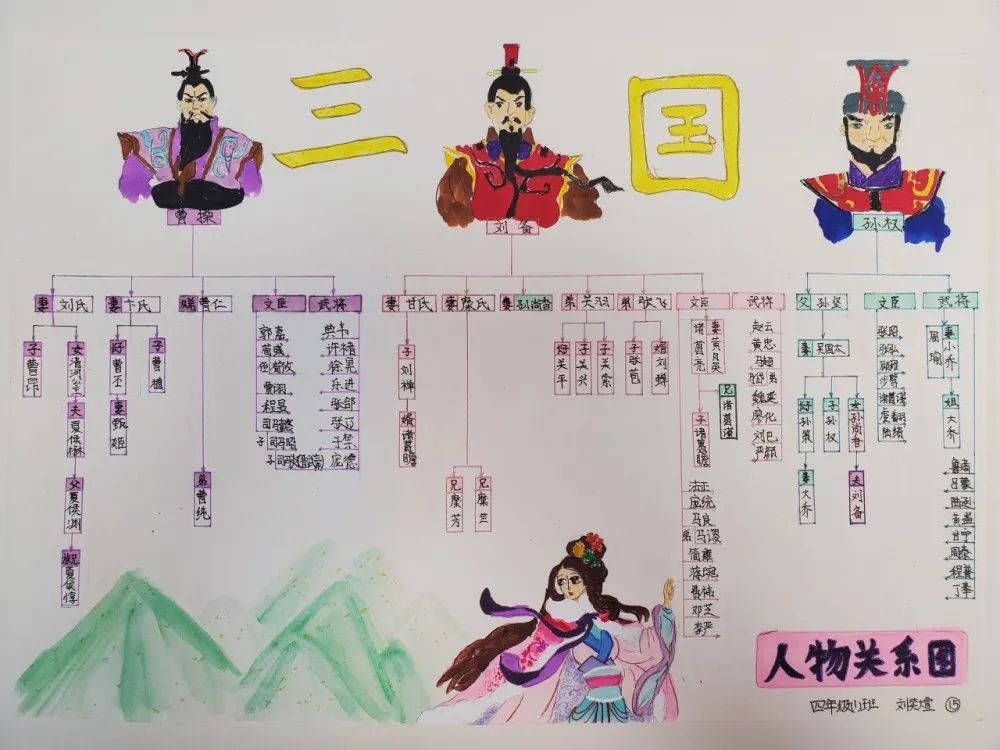 三国
曹操
刘备
孙权
妻 刘氏
妻 卞氏
曹仁
文臣
武将
子 曹昂
女 清河公主
夫 夏侯楙
父 夏侯渊
夏侯惇
曹丕
妻 甄姬
子 曹植
弟 曹纯
郭嘉
荀彧
荀攸
程昱
司马懿
子 司马昭
典韦
许褚
徐晃
乐进
张郃
张辽
于禁
庞德
妻 甘氏
妻 糜氏
妻 孙尚香
弟 关羽
弟 张飞
文臣
武将
子 刘禅
婿 诸葛瞻
兄 糜芳
兄 糜竺
关平
子 关兴
子 关索
子 张苞
婿 刘禅
诸葛亮
妻 黄月英
兄 诸葛瑾
子 诸葛瞻
法正
庞统
马良
弟 马谡
简雍
蒋琬
费祎
邓芝
李严
赵云
黄忠
马超
马岱 弟
魏延
廖化
刘巴
严颜
父 孙坚
文臣
武将
妻 吴国太
孙策
妻 大乔
子 孙权
女 孙尚香
夫 刘备
张昭
张弘
顾雍
步骘
诸葛瑾
虞翻
陆绩
周瑜
妻 小乔
姐 大乔
鲁肃
吕蒙
陆逊
黄盖
甘宁
周泰
程普
丁奉
人物关系图
四年级 班 刘奕煊 15